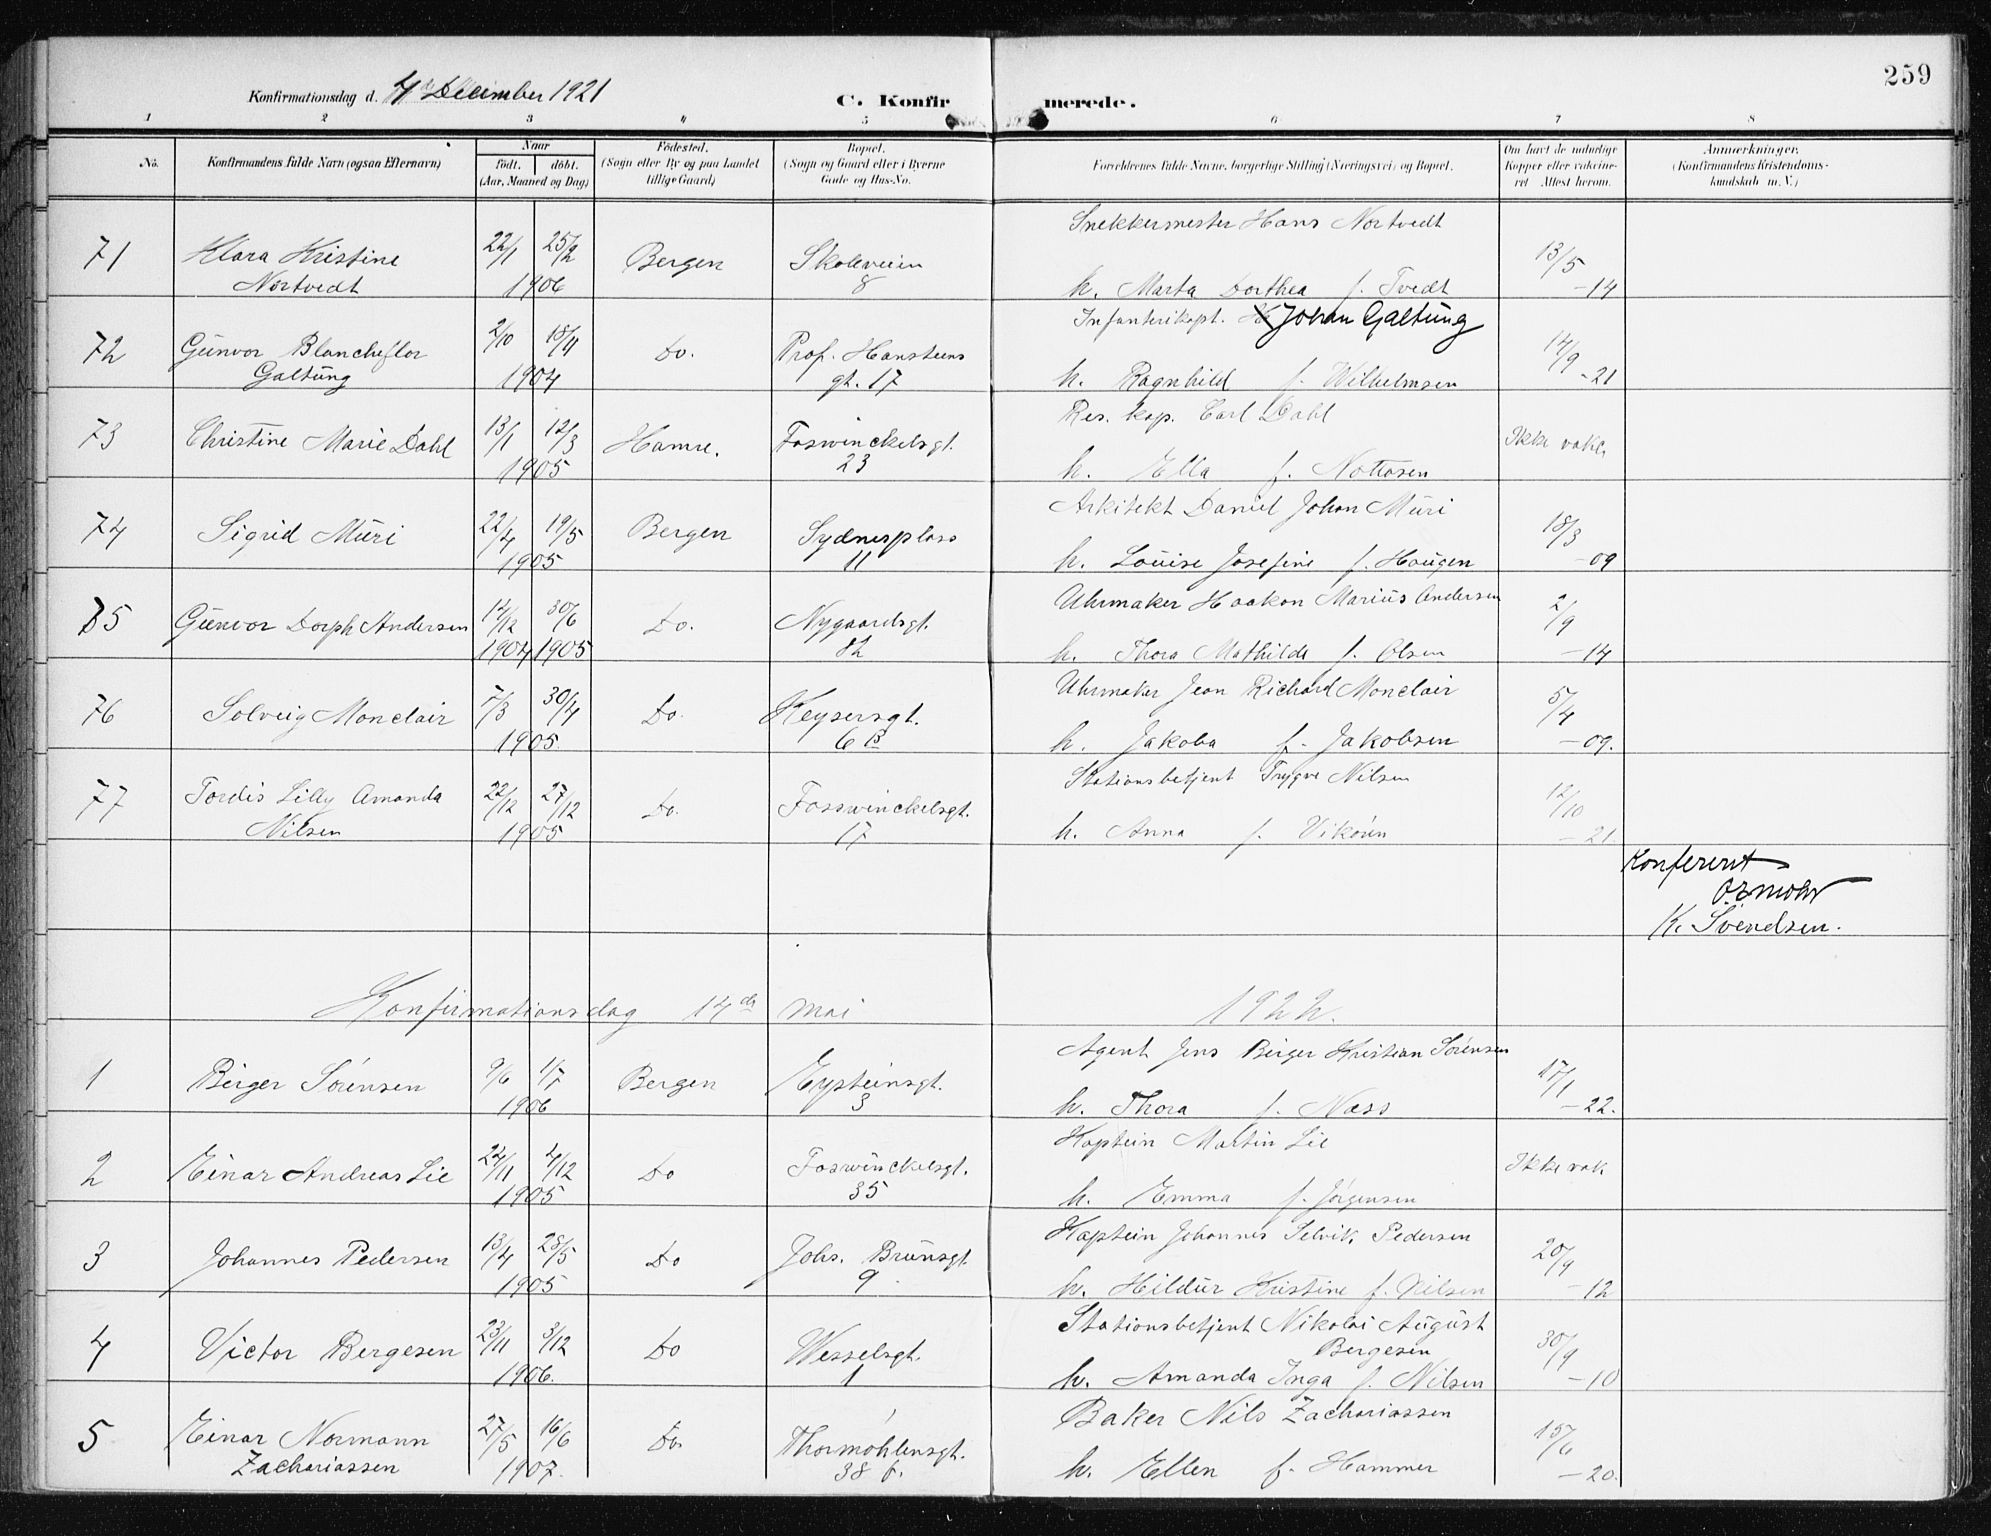 259
Konfirmationsdag d. 4de December 1921 C. Konfirmerede.
1 2 3 4 5 6 7 8
No. Konfirmandens fulde Navn (ogsaa Efternavn) Naar født. døbt. (Aar, Maaned og Dag) Fødested. (Sogn eller By og paa Landet tillige Gaard) Bopæl. (Sogn og Gaard eller i Byerne Gade og Hus-No. Forældrenes fulde Navne, borgerlige Stilling (Næringsvei) og Bopæl. Om havt de naturlige Kopper eller vaccineret Attest herom. Anmærkninger. (Konfirmandens Kristendomskundskab m. V.)
Snekkermester Hans Nortvedt
71 Klara Kristine 22/1 25/2 Bergen Skoleveien 13/5
Nortvedt 1906 8 h. Marta Dorthea f. Tvedt -14
Infanterikapt. Johan Galtung
72 Gunvor Blancheflor 2/10 18/4 Do. Prof. Hansteens 14/9
Galtung 1904 gt. 17 h. Ragnhild f. Wilhelmsen -21
Res. kap. Carl Dahl
73 Christine Marie Dahl 13/1 12/3 Hamre. Foswinckelsgt. Ikke vakc.
1905 23 h. Ella f. Nottosen
Arkitekt Daniel Johan Muri
74 Sigrid Muri 22/4 19/5 Bergen Sydnesplass 18/3
1905 11 h. Louise Josefine f. Haugen -09
Uhrmaker Haakon Marius Andersen
75 Gunvor Dorph Andersen 12/12 30/6 Do. Nygaardsgt. 2/9
1904 1905 82 h. Thora Mathilde f. Olsen -14
Uhrmaker Jean Richard Monclair
76 Solveig Monclair 7/3 30/4 Do. Keysersgt. 5/4
1905. 6 B h. Jakoba f. Jakobsen -09.
Stationsbetjent Trygve Nilsen
77 Tordis Lilly Amanda 22/12 27/12 Do. Fosswinckelsgt. 12/10
Nilsen 1905 17 h. Anna f. Vikøren -21
Konferert
K. Svendsen.
Konfirmationsdag 14de mai 1922.
Agent Jens Birger Kristian Sørensen
1 Birger Sørensen 9/6 1/7 Bergen Eysteinsgt. 17/1
1906 3 h. Thora f. Næss -22.
Kaptein Martin Lie
2 Einar Andreas Lie 24/11 4/12 Do Foswinckelsgt. Ikke vak
1905 35 h. Emma f. Jørgensen
Kaptein Johannes Selvik Pedersen
3 Johannes Pedersen 13/4 28/5 Do Johs. Brunsgt. 20/9
1905 9. h. Hildur Kristine f. Nilsen -12
Stationsbetjent Nikolai August
Bergesen
4 Victor Bergesen 23/11 3/12 Do Wesselsgt. 30/9
1906. 1 h. Amanda Inga f. Nilsen -10
Baker Nils Zachariassen
5 Einar Normann 27/5 16/6 Do. Thormøhlensgt. 15/6
Zachariassen 1907. 38 b. h. Ellen f. Hammer -20.